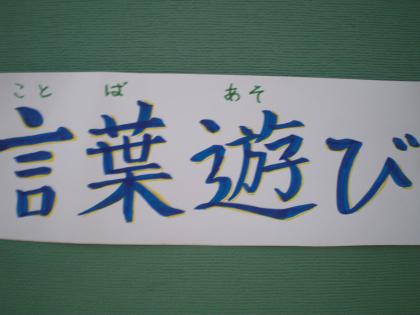 ことばあそ
言葉遊び